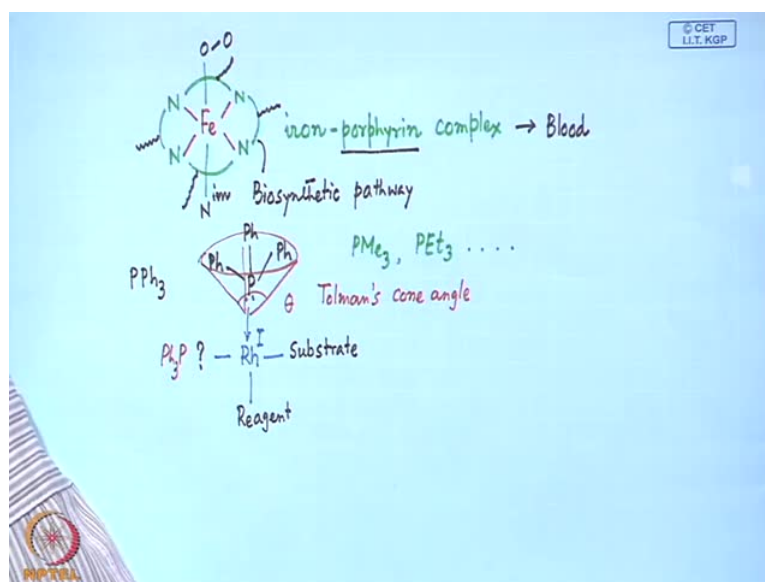 © CET
I.I.T. KGP
O-O
N N
Fe
N N
iron-porphyrin complex → Blood
N im Biosynthetic pathway
Ph
Ph Ph
P
PPh3
PMe3, PEt3 ....
θ Tolman's cone angle
Ph3P ? - Rh I - Substrate
Reagent
NPTEL